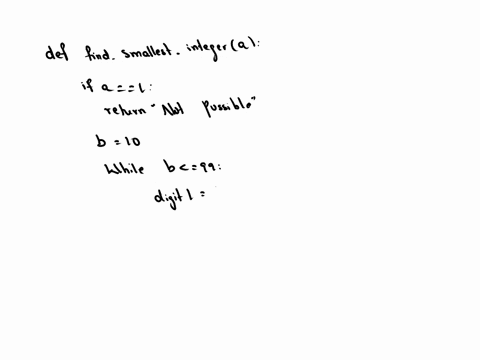 def find_smallest_integer(a):
if a==1:
return "Not possible"
b = 10
While b<=99:
digit1 =